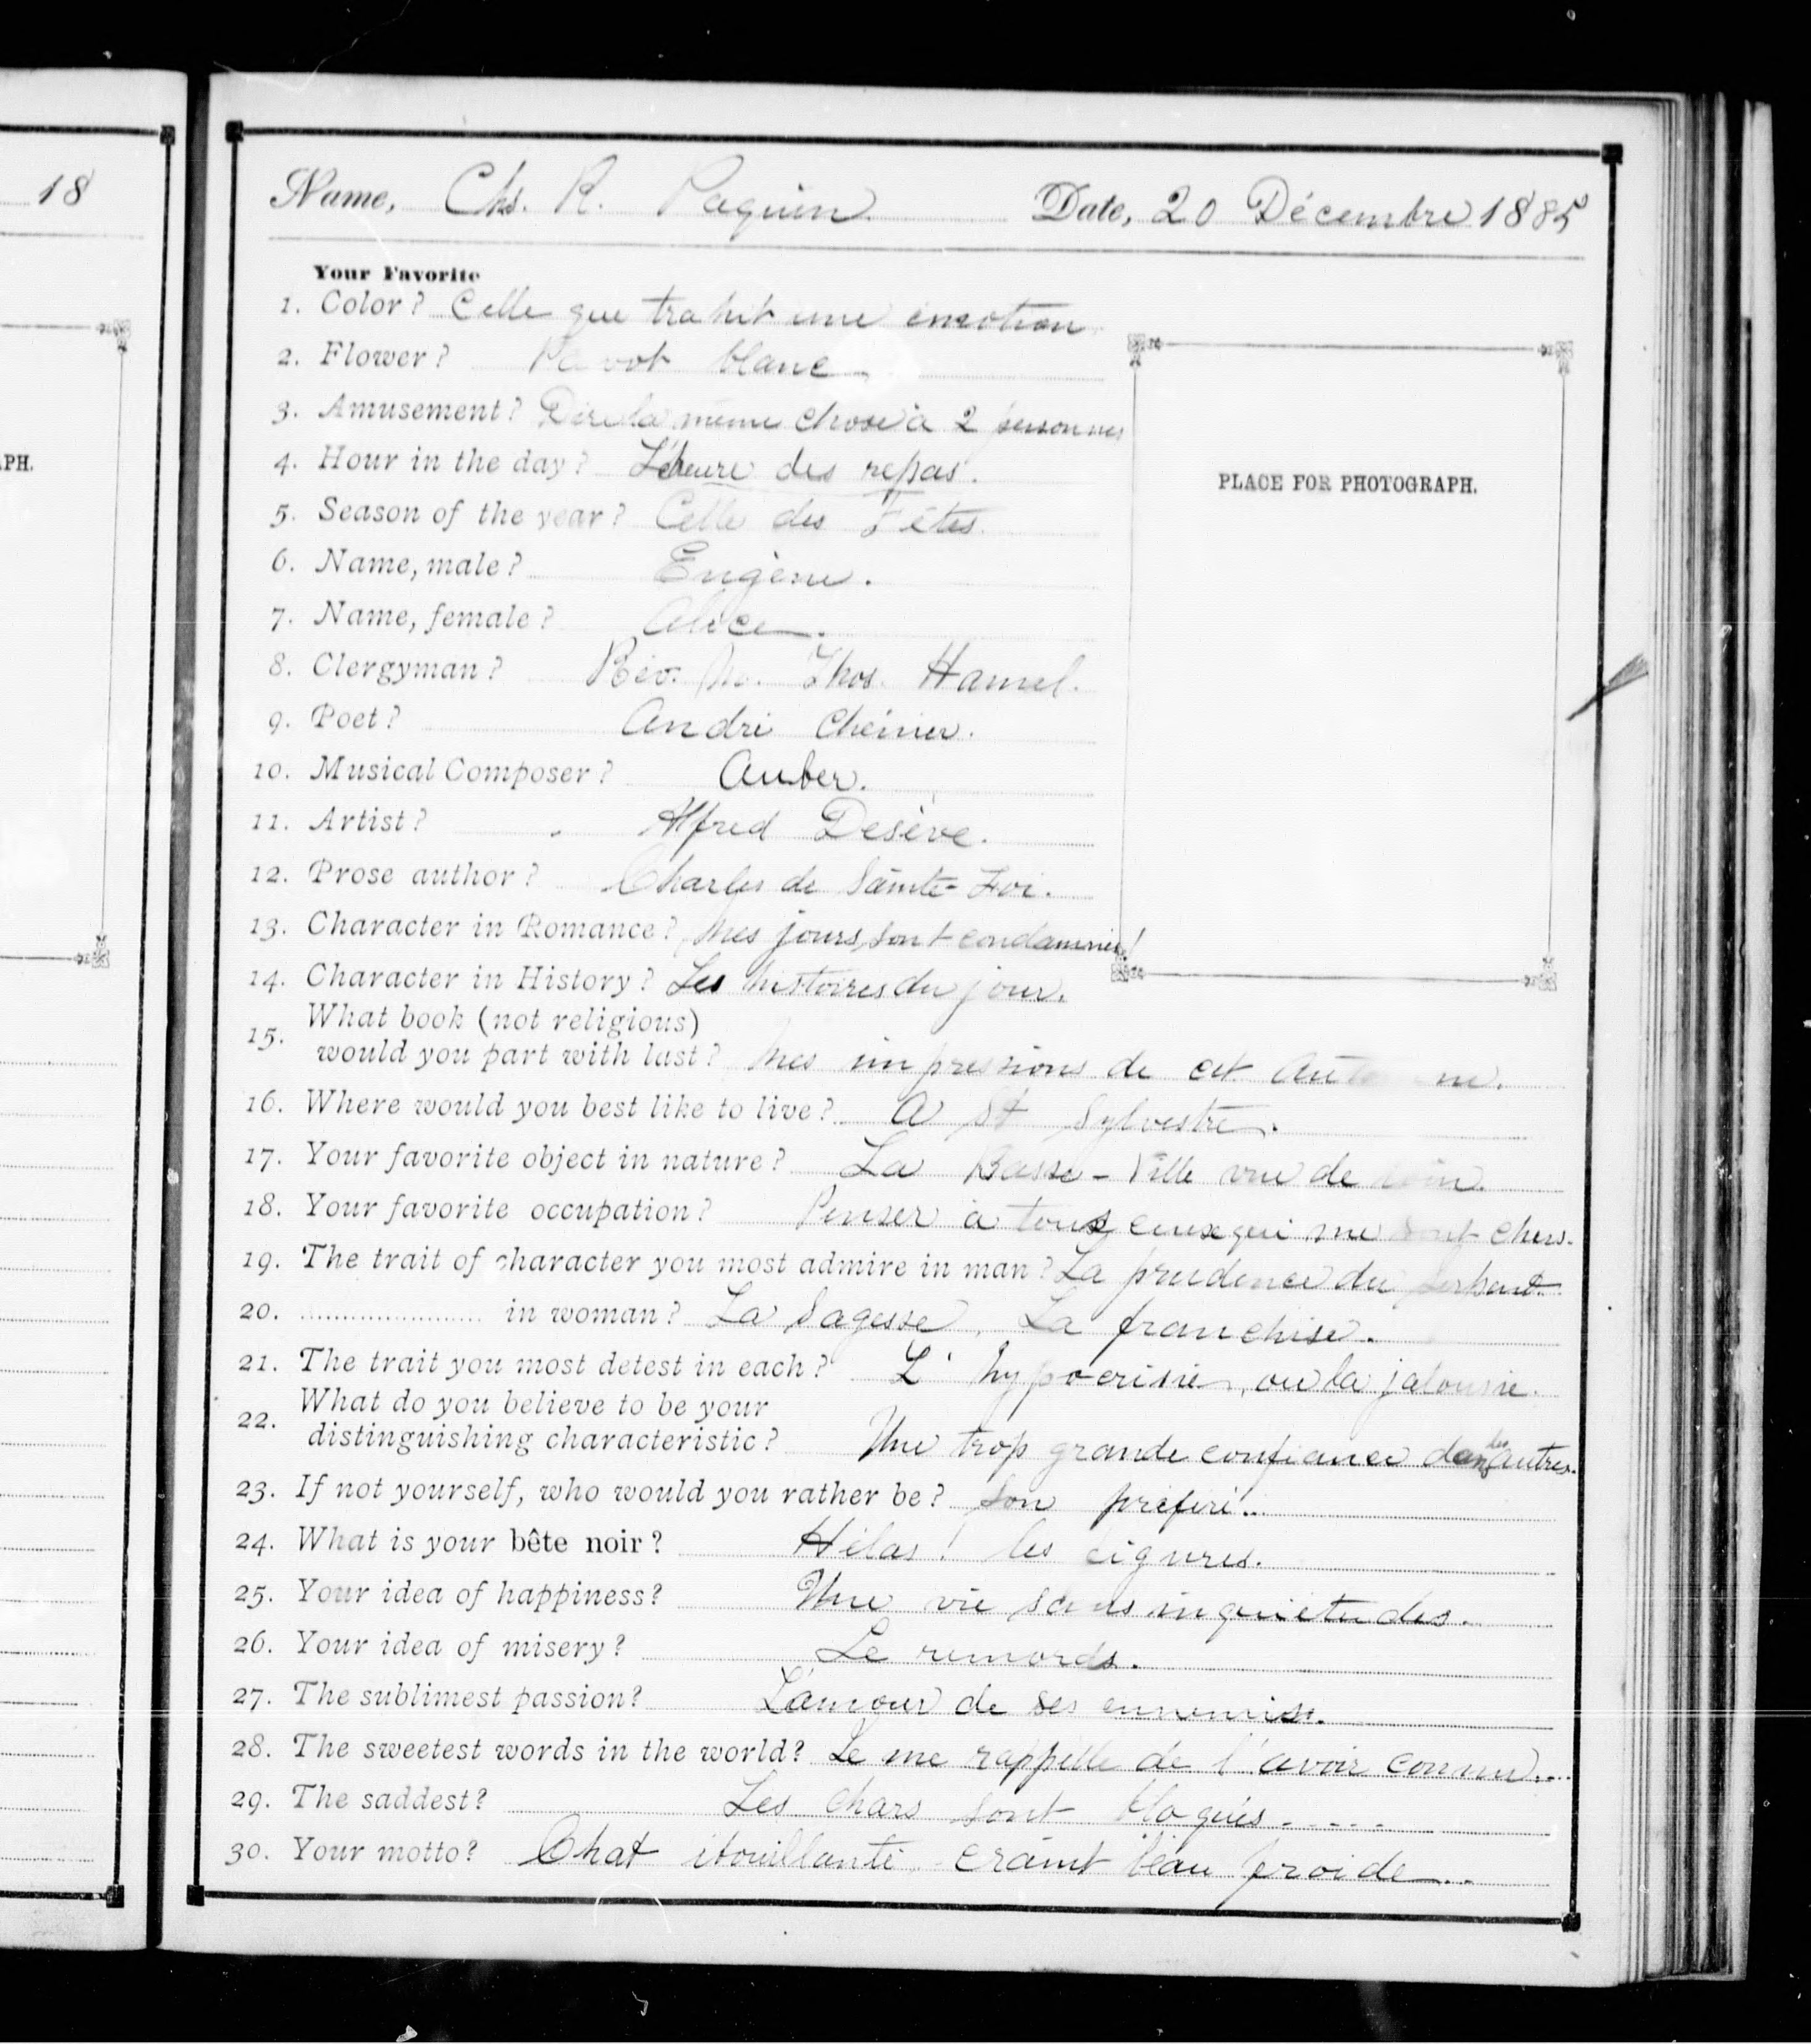 18
APH.
Name, Chs. R. Paquin Date, 20 Décembre 1885
Your Favorite
1. Color? Celle que trahit une émotion
2. Flower? Pavot blanc
3. Amusement? Dire la même chose à 2 personnes
4. Hour in the day? L'heure des repas.
5. Season of the year? Celle des Fêtes.
6. Name, male? Eugène.
7. Name, female? Alice.
8. Clergyman? Rév. M. Thos. Hamel.
9. Poet? André Chénier.
10. Musical Composer? Auber.
11. Artist? Alfred Desève.
12. Prose author? Charles de Sainte-Foi.
13. Character in Romance? Mes jours sont condamnés!
14. Character in History? Les histoires du jour.
PLACE FOR PHOTOGRAPH.
15. What book (not religious)
would you part with last? Mes impressions de cet Automne.
16. Where would you best like to live? A St Sylvestre.
17. Your favorite object in nature? La Basse-Ville vue de loin.
18. Your favorite occupation? Penser à tous ceux qui me sont chers.
19. The trait of character you most admire in man? La prudence du serpent
20. .................... in woman? La Sagesse, La franchise.
21. The trait you most detest in each? L'hypocrisie, ou la jalousie.
22. What do you believe to be your
distinguishing characteristic? Une trop grande confiance dans les autres.
23. If not yourself, who would you rather be? Son préféré..
24. What is your bête noir? Hélas! les
25. Your idea of happiness? Une vie sans inquiétudes.
26. Your idea of misery? Le remords.
27. The sublimest passion? L'amour de ses ennemis.
28. The sweetest words in the world? Je me rappelle de l'avoir connu....
29. The saddest? Les chars sont bloqués .....
30. Your motto? Chat craint l'eau froide...